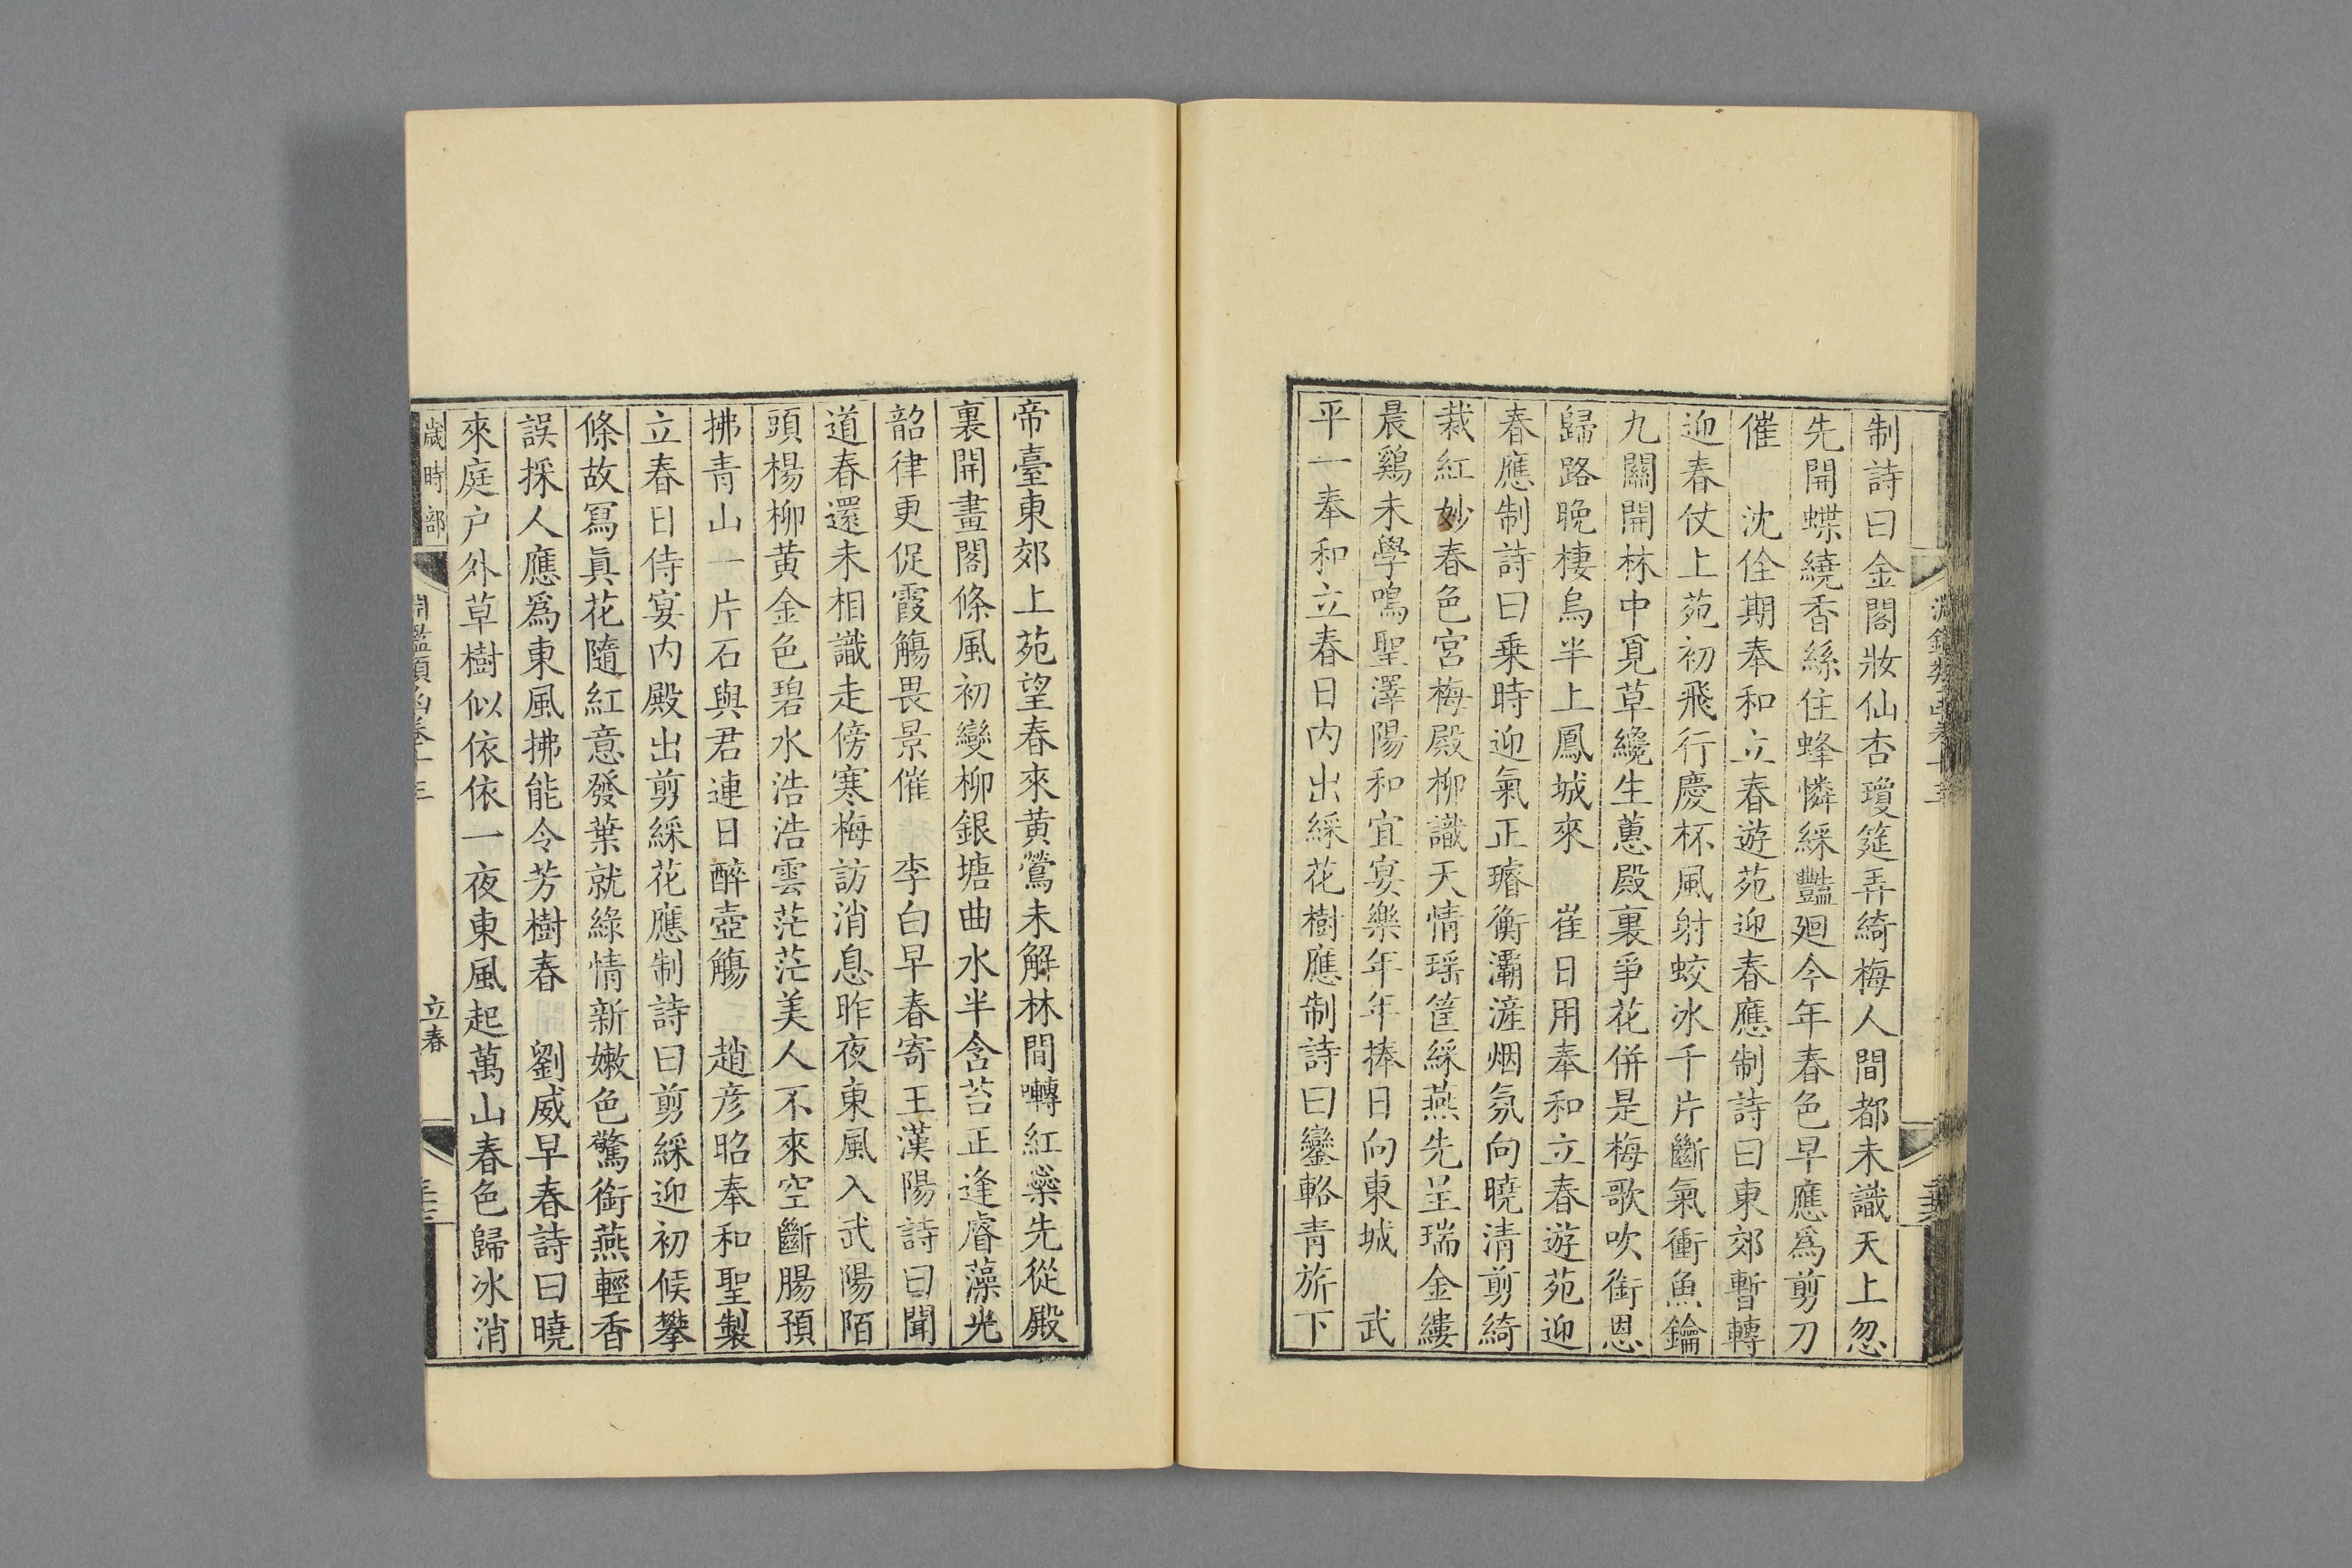 制詩曰金閣妝仙杏瓊筵弄綺梅人間都未識天上忽
先開蝶繞香絲住蜂憐綵豔廻今年春色早應爲剪刀
催　沈佺期奉和立春遊苑迎春應制詩曰東郊暫轉
迎春仗上苑初飛行慶杯風射蛟冰千片斷氣衝魚鑰
九關開林中覓草纔生蕙殿裏爭花併是梅歌吹銜恩
歸路晚棲烏半上鳳城來　崔日用奉和立春遊苑迎
春應制詩曰乗時迎氣正璿衡灞滻烟氛向曉清剪綺
裁紅妙春色宮梅殿柳識天情瑶筐綵燕先呈瑞金縷
晨鷄未學鳴聖澤陽和宜宴樂年年捧日向東城　武
平一奉和立春日内出綵花樹應制詩曰鑾輅青旂下
帝臺東郊上苑望春來黄鶯未解林間囀紅蘂先從殿
裏開畫閣條風初變柳銀塘曲水半含苔正逢睿藻光
韶律更促霞觴畏景催　李白早春寄王漢陽詩曰聞
道春還未相識走傍寒梅訪消息昨夜東風入武陽陌
頭楊柳黄金色碧水浩浩雲茫茫美人不來空斷腸預
拂青山一片石與君連日醉壺觴　趙彦昭奉和聖製
立春日侍宴内殿出剪綵花應制詩曰剪綵迎初候攀
條故寫眞花隨紅意發葉就綠情新嫩色驚銜燕輕香
誤採人應爲東風拂能令芳樹春　劉威早春詩曰曉
來庭户外草樹似依依一夜東風起萬山春色歸冰消
歲時部　淵鑑類函卷十三　立春